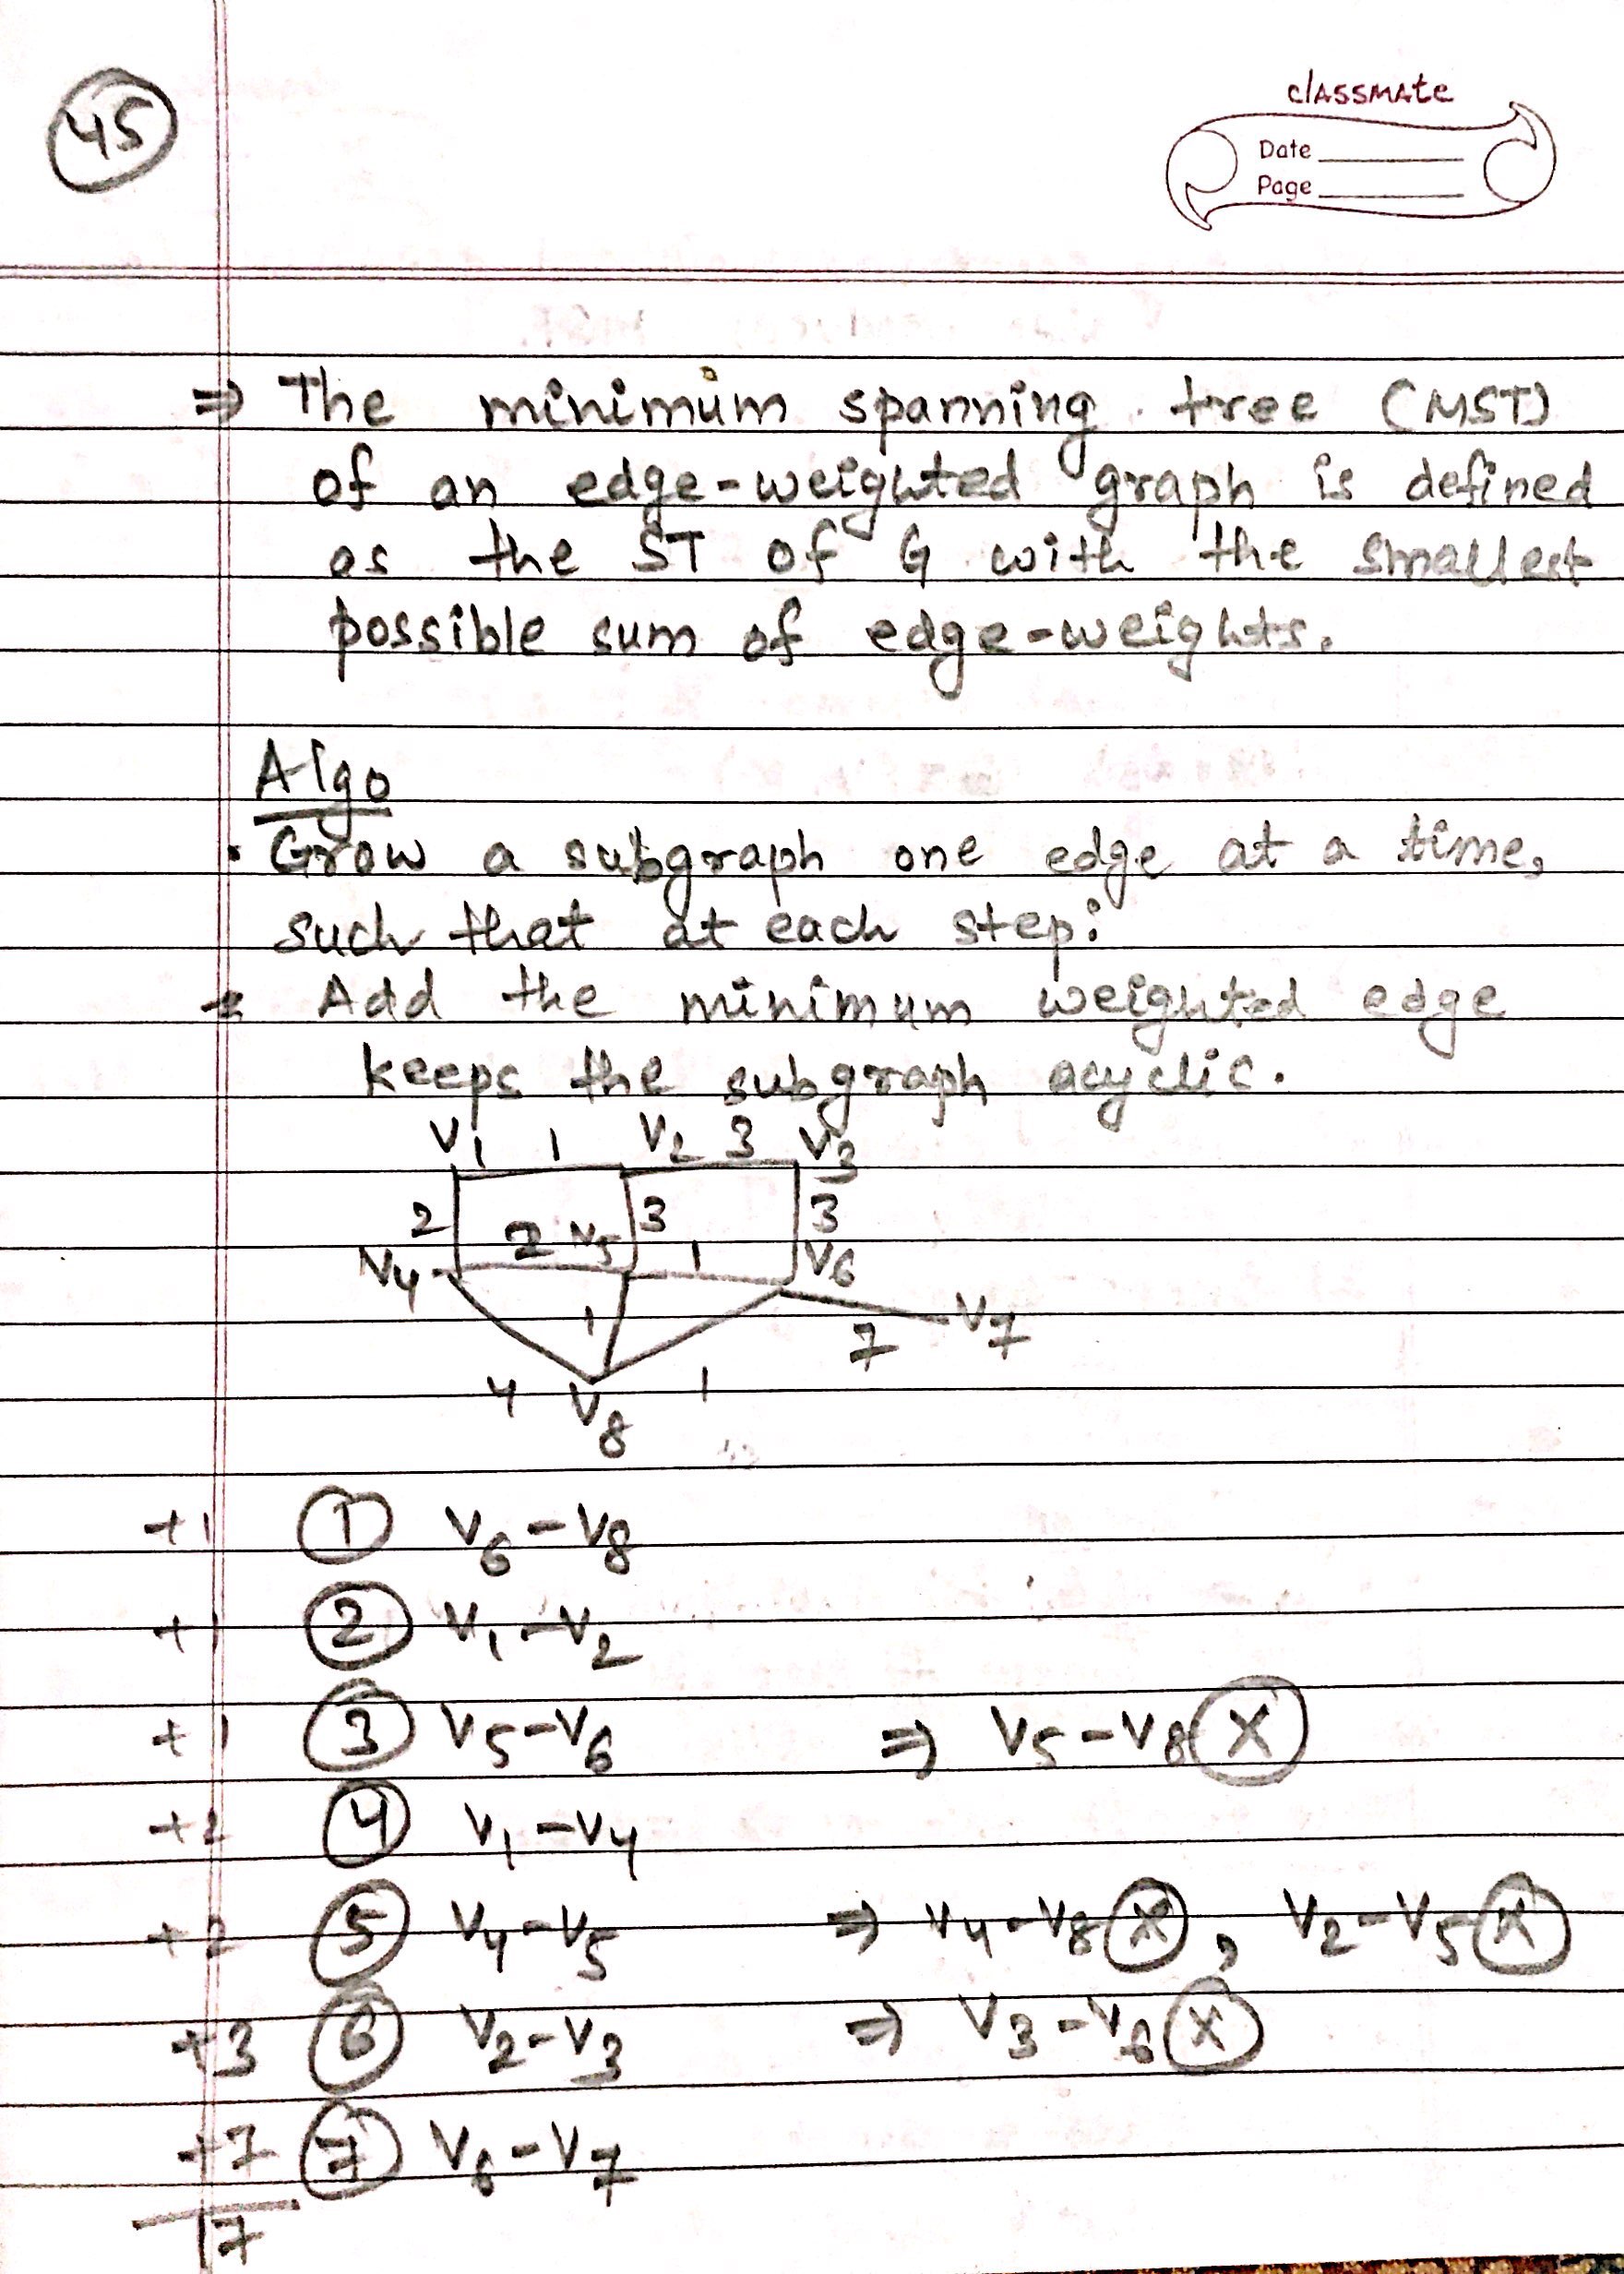 45
classmate
Date
Page
⇒ The minimum spanning tree (MST)
of an edge-weighted graph is defined
as the ST of G with the smallest
possible sum of edge-weights.
Algo
• Grow a subgraph one edge at a time,
such that at each step:
* Add the minimum weighted edge
keeps the subgraph acyclic.
V1 1 V2 3 V3
2 3 3
V4 2 V5 1 V6
1 7 V7
4 V8 1
+1 ① V6-V8
+1 ② V1-V2
+1 ③ V5-V6 ⇒ V5-V8 ⓧ
+2 ④ V1-V4
+2 ⑤ V4-V5 ⇒ V4-V8 ⓧ, V2-V5 ⓧ
+3 ⑥ V2-V3 ⇒ V3-V6 ⓧ
+7 ⑦ V6-V7
17